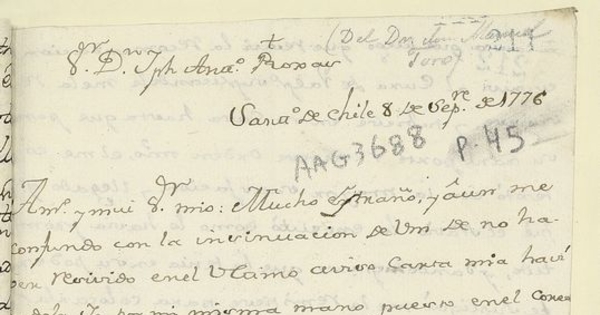 (Del Dr. dn. Manuel
Toro)
Sr. Dn. Jph Anto. Roxas
Santo. de Chile 8 de Sepre. de 1776
AAG3688 p. 45
Amo. y mui Sr. mio: Mucho extraño, y âun me
confundo con la insinuacion de Vm. de no ha-
ver recivido en el Ultimo aviso Carta mia havi
por mi misma mano puesto en el Corre